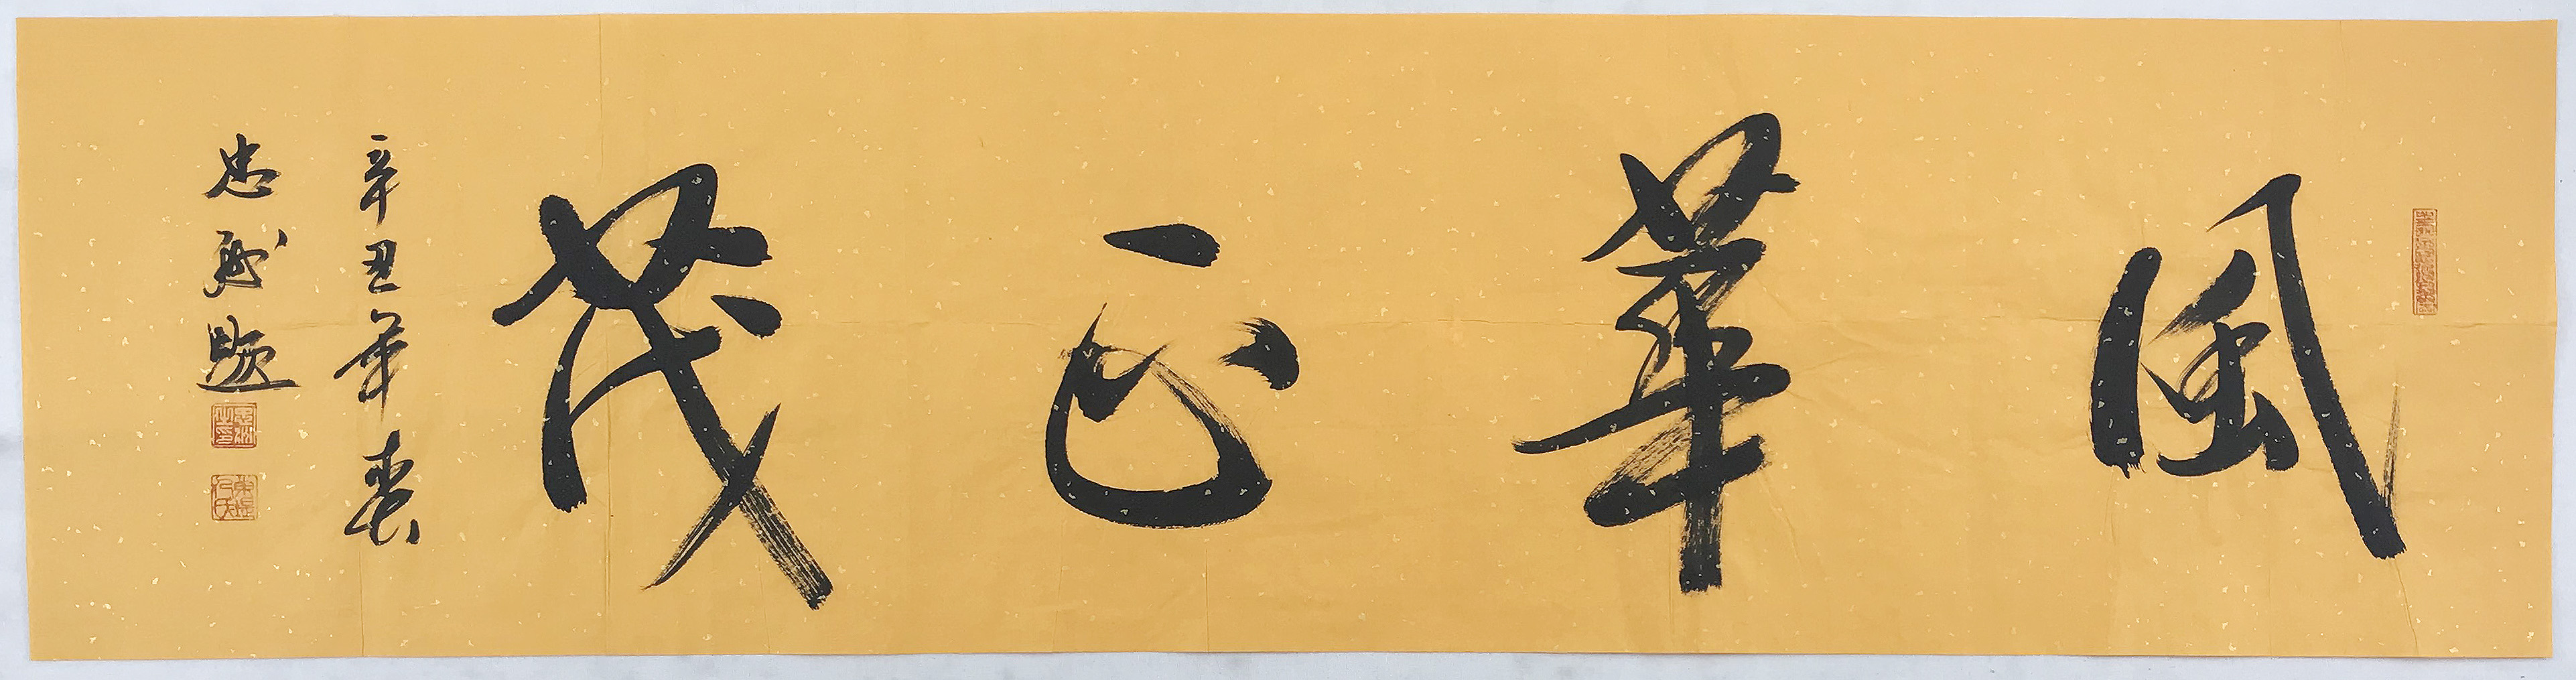 風華正茂
辛丑年春
忠州題